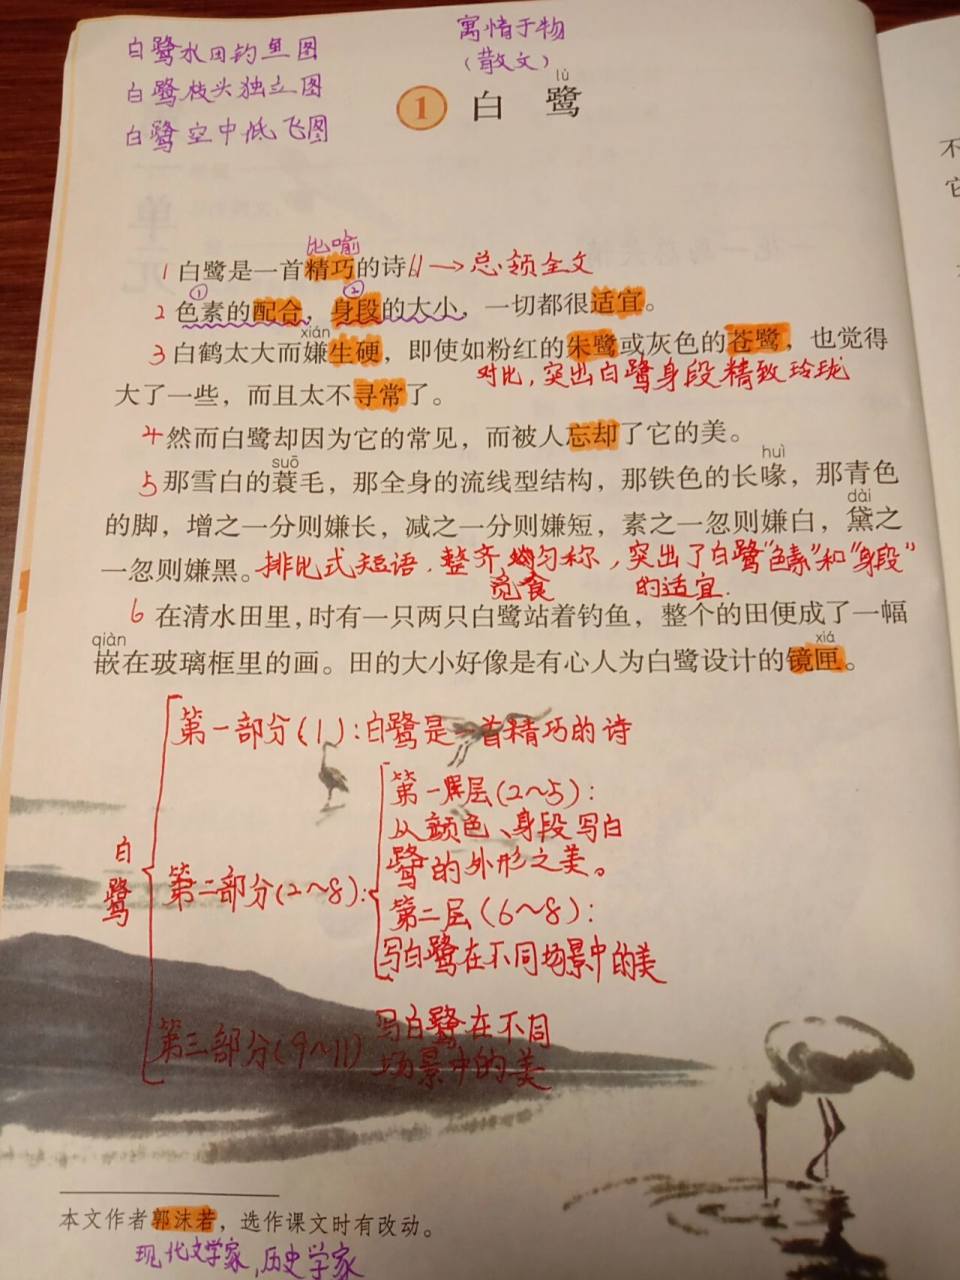 白鹭水田钓鱼图
白鹭枝头独立图
白鹭空中低飞图
寓情于物
（散文）
lù
1 白鹭
比喻
1 白鹭是一首精巧的诗。→总领全文
① ②
2 色素的配合，身段的大小，一切都很适宜。
xián
3 白鹤太大而嫌生硬，即使如粉红的朱鹭或灰色的苍鹭，也觉得
对比，突出白鹭身段精致玲珑
大了一些，而且太不寻常了。
4 然而白鹭却因为它的常见，而被人忘却了它的美。
suō huì
5 那雪白的蓑毛，那全身的流线型结构，那铁色的长喙，那青色
dài
的脚，增之一分则嫌长，减之一分则嫌短，素之一忽则嫌白，黛之
一忽则嫌黑。排比式短语，整齐匀称，突出了白鹭"色素"和"身段"
觅食 的适宜.
6 在清水田里，时有一只两只白鹭站着钓鱼，整个的田便成了一幅
qiàn xiá
嵌在玻璃框里的画。田的大小好像是有心人为白鹭设计的镜匣。
白鹭
第一部分(1)：白鹭是一首精巧的诗
第二部分(2～8)：
第一层(2～5)：
从颜色、身段写白
鹭的外形之美。
第二层(6～8)：
写白鹭在不同场景中的美
第三部分(9～11) 写白鹭在不同
场景中的美
本文作者郭沫若，选作课文时有改动。
现代文学家，历史学家
不
它